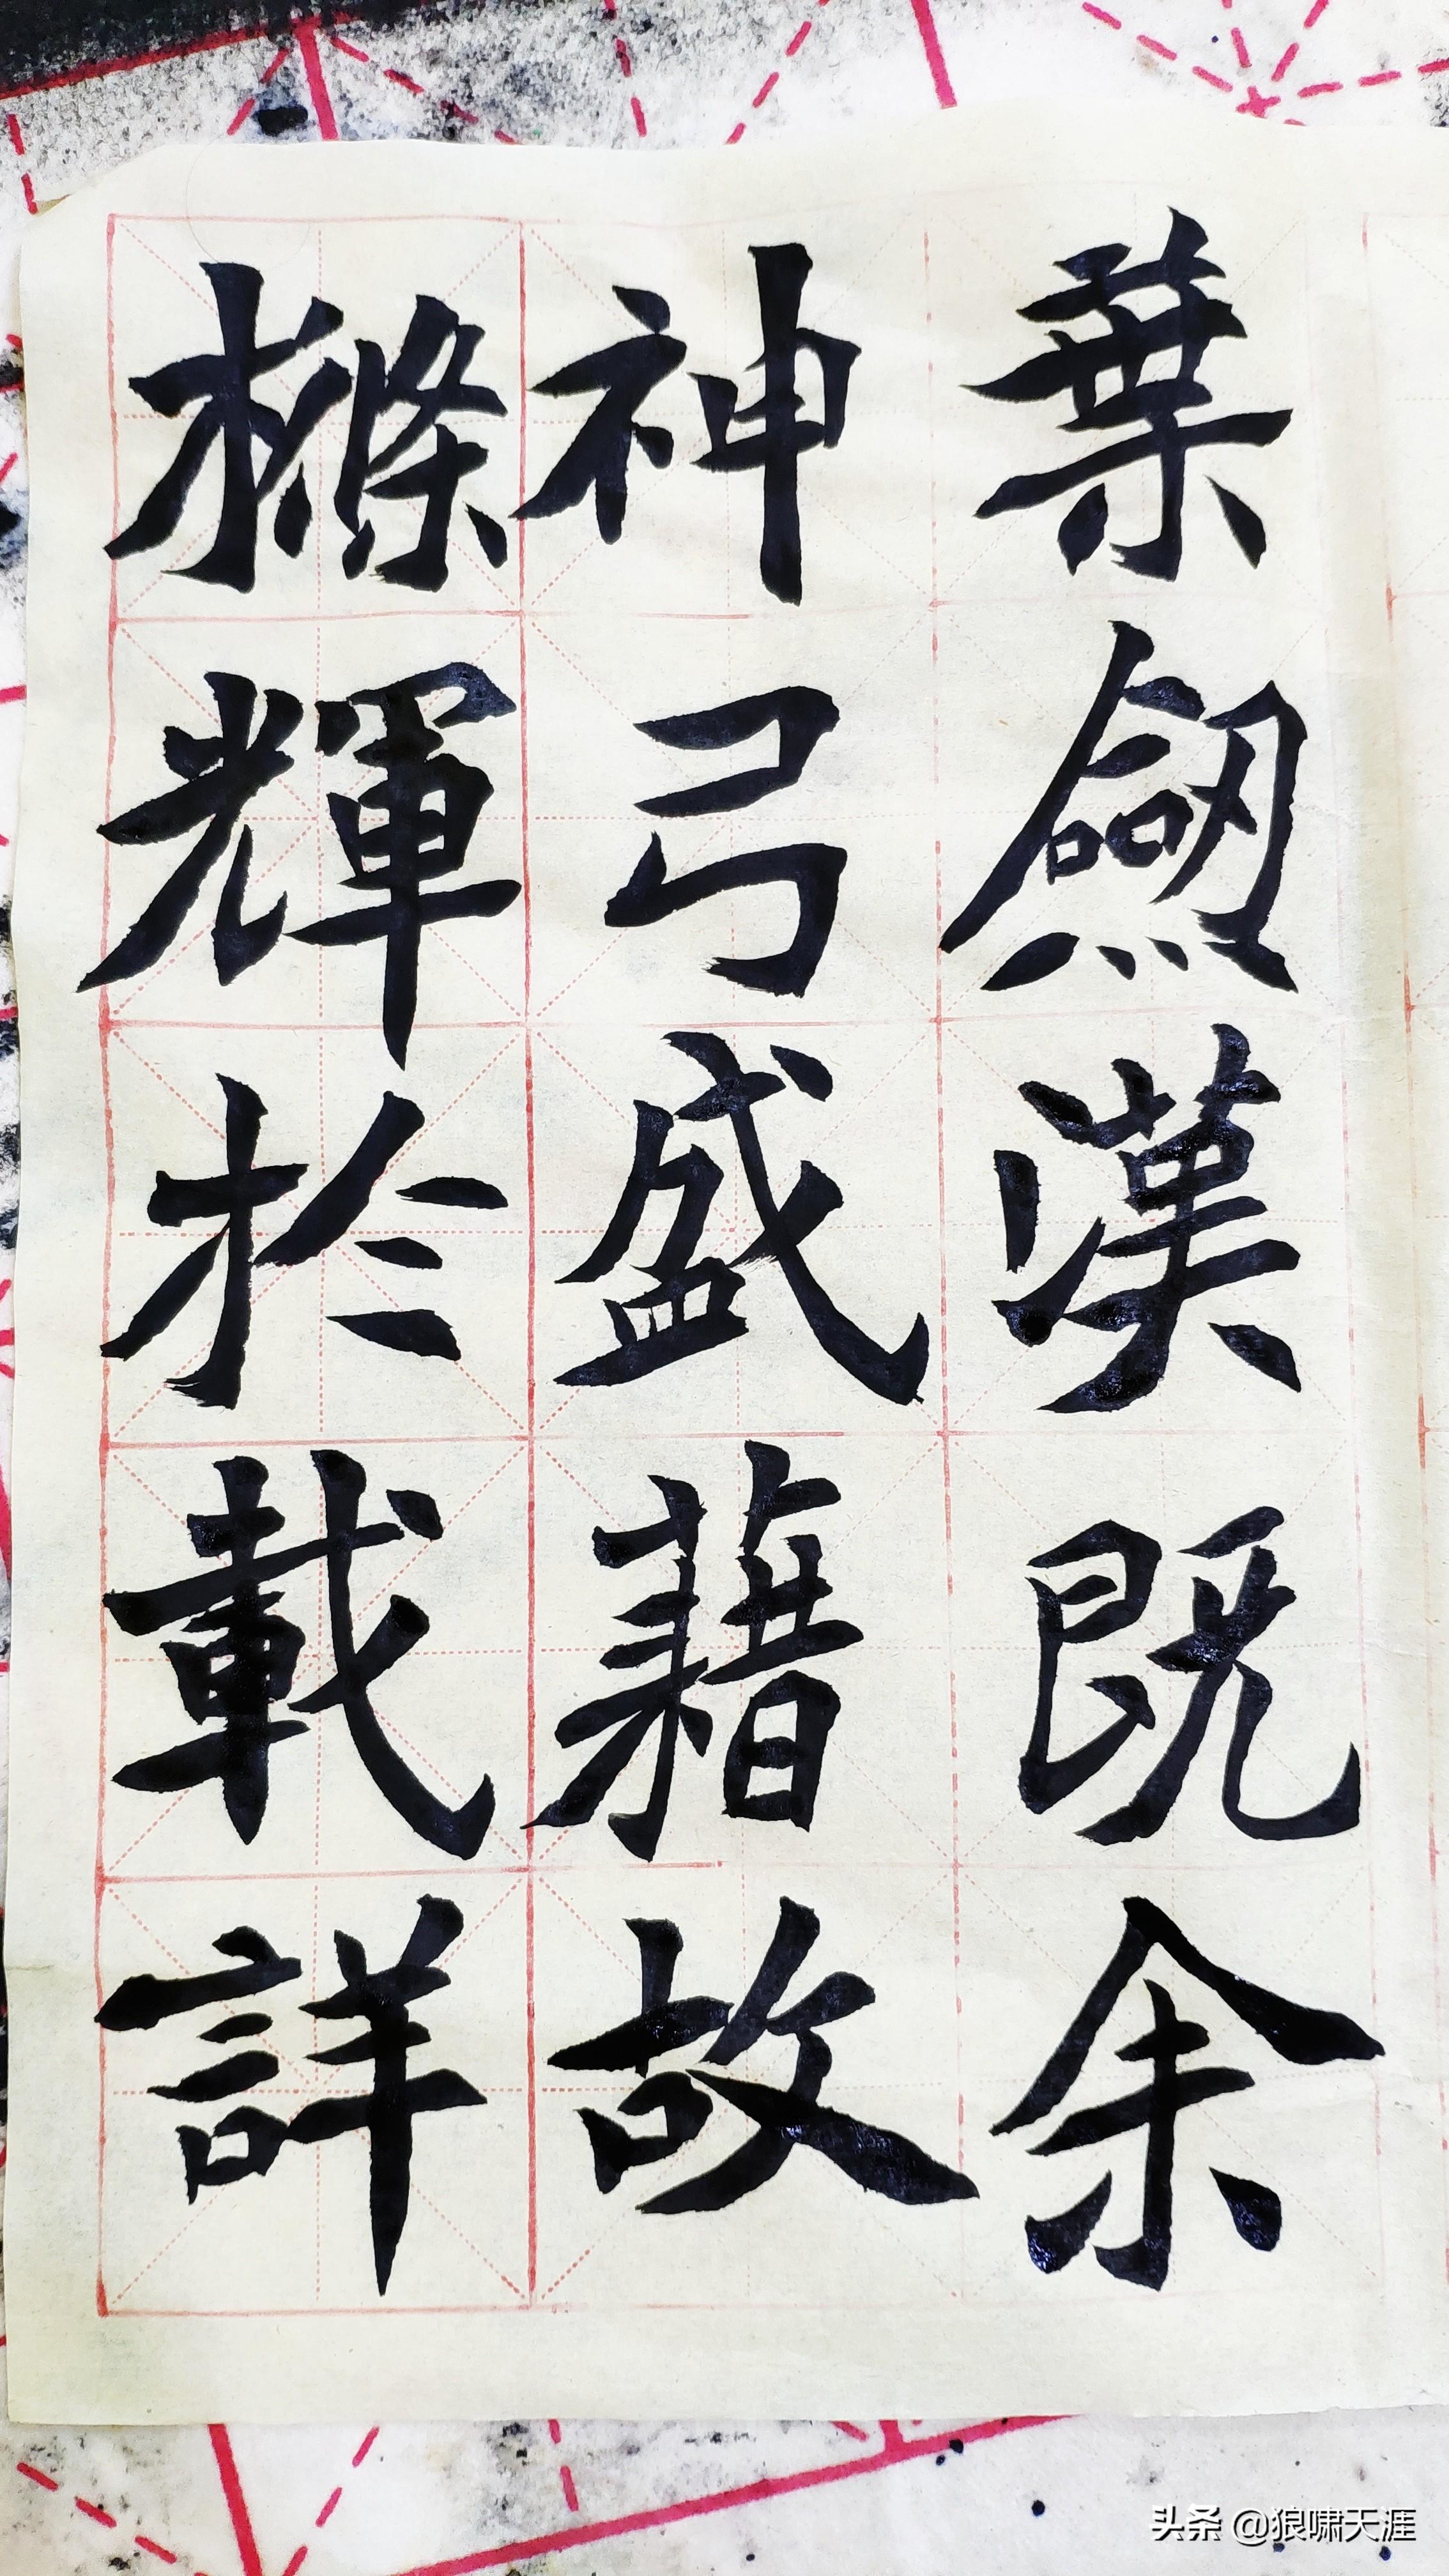 葉劔漢既余
神弓盛藉故
樤輝於載詳
头条 @狼啸天涯